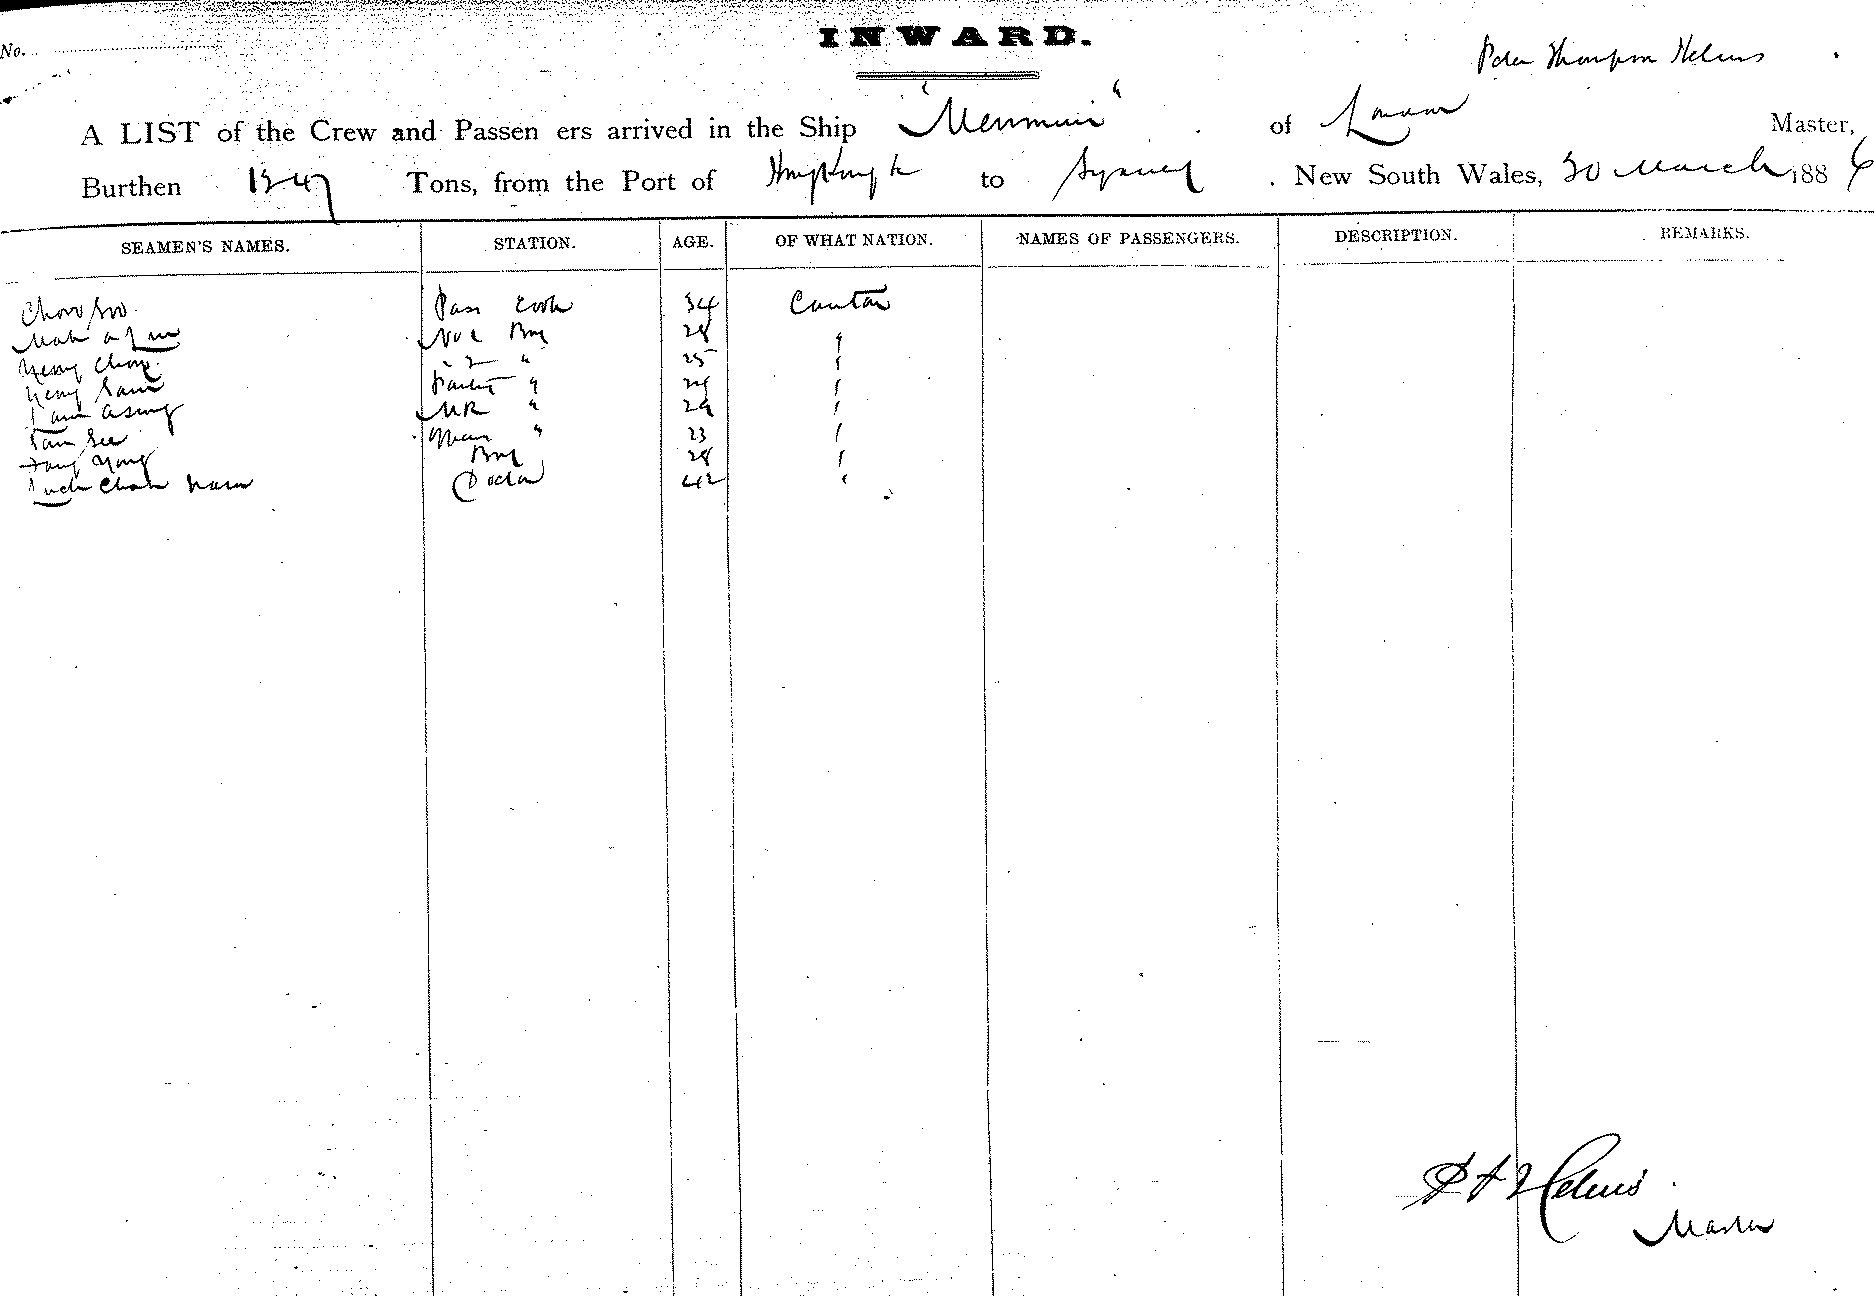 INWARD.
No.
Peter Thompson Helms
A LIST of the Crew and Passen ers arrived in the Ship "Menmuir" of London Master,
Burthen 1247 Tons, from the Port of Hong Kong to Sydney . New South Wales, 30 March 1886
SEAMEN'S NAMES. STATION. AGE. OF WHAT NATION. NAMES OF PASSENGERS. DESCRIPTION. REMARKS.
Chow Soo Pass Cook 34 Canton
Mak Boy 28 "
Yeong Chong 2 " 25 "
Yeong Sam Pantry "
Lam Asung MR " 29 "
Tam See Mess " 23 "
Fong Yong Boy 28 "
Chan Nam Doctor 42 "
P T Helms
Master